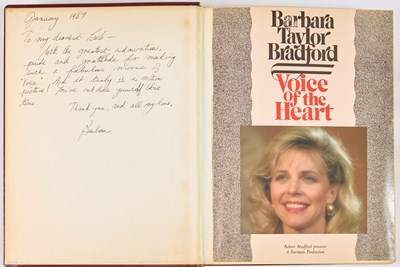 January 1989
To my dearest Bob—
With the greatest admiration,
pride and gratitude for making
such a fabulous movie of
"Voice". And it truly is a motion
picture! You've out done yourself this
time.
Thank you, and all my love,
Barbara
Barbara
Taylor
Bradford
Voice
of the
Heart
Robert Bradford presents
A Portman Production